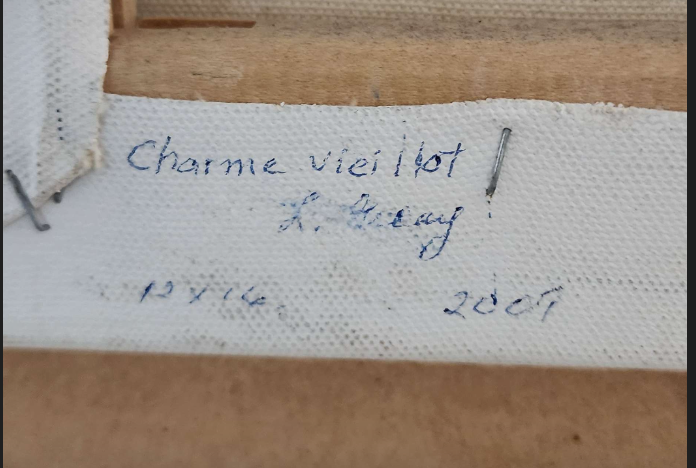 Charme vieillot
L.
12 x 14
2007